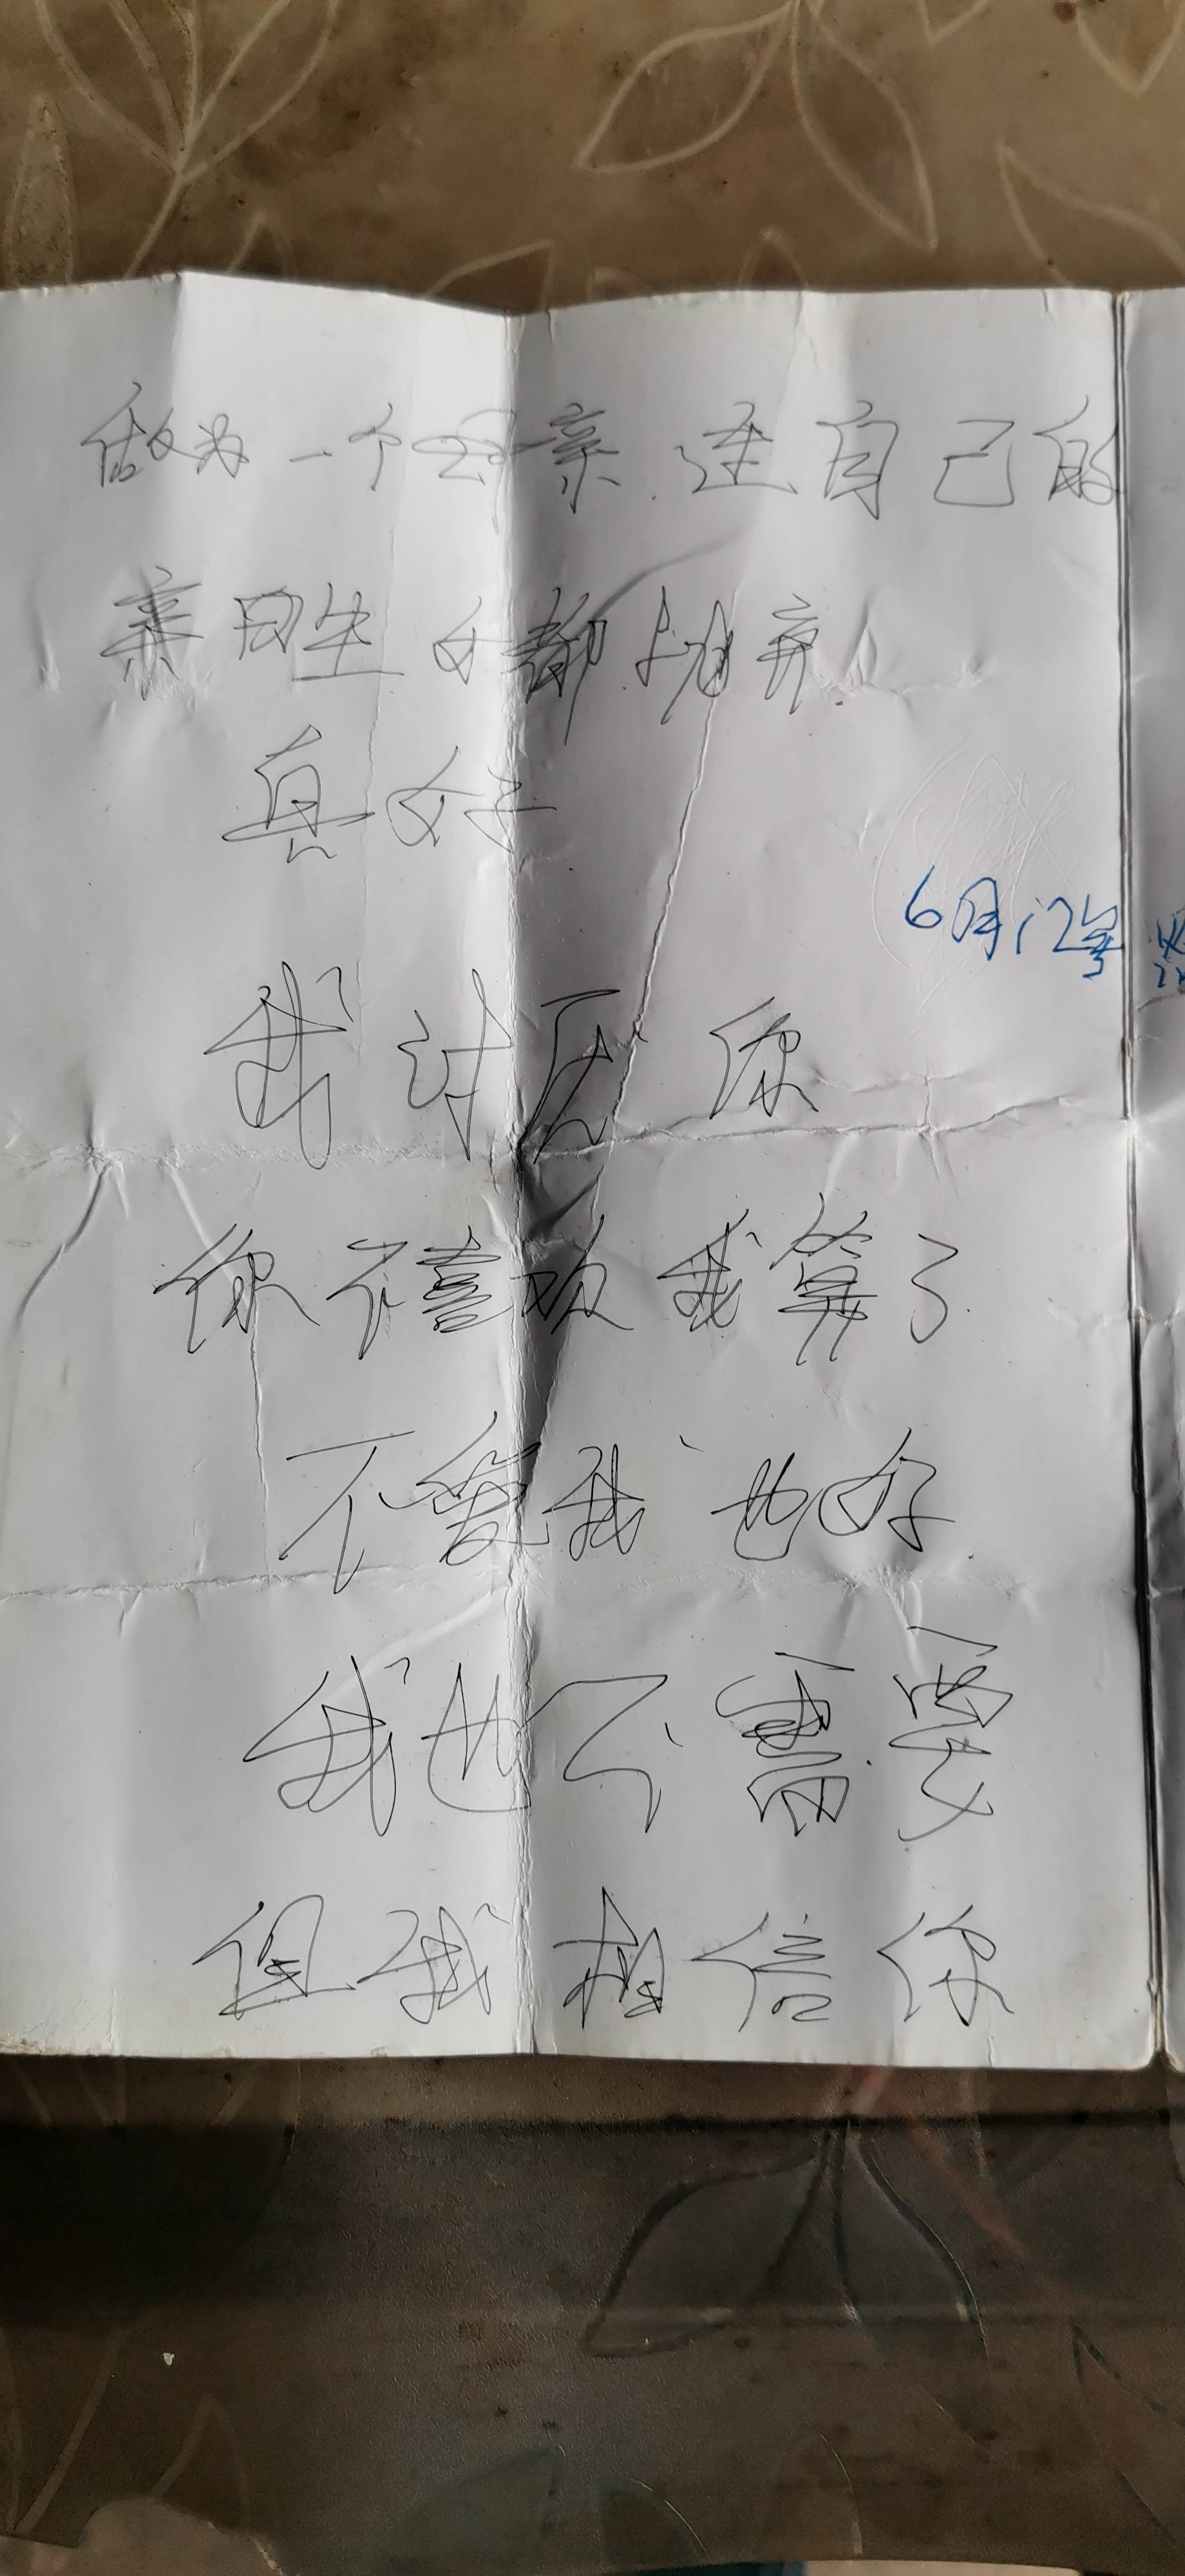 做为一个母亲.连自己的
亲因生的都抛弃!
真好
6月12号
我讨厌你
你不喜欢我算了
不爱我也好
我也不需要
但我相信你